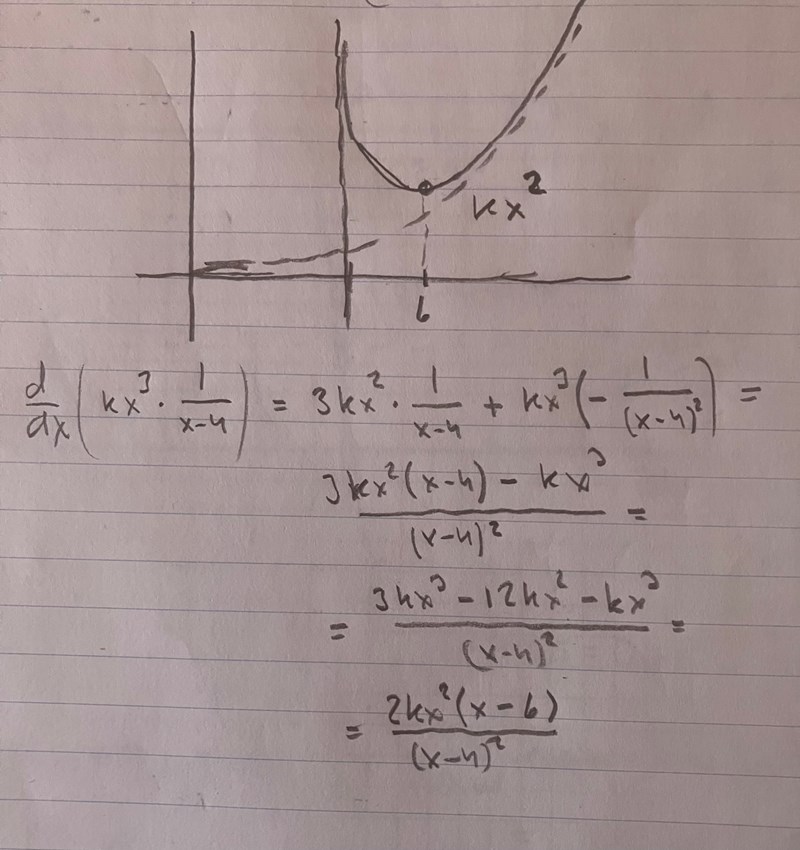 kx²
6
d/dx (kx³ · 1/(x-4)) = 3kx² · 1/(x-4) + kx³(- 1/(x-4)²) =
(3kx²(x-4) - kx³)/(x-4)² =
= (3kx³ - 12kx² - kx³)/(x-4)² =
= 2kx²(x-6)/(x-4)²